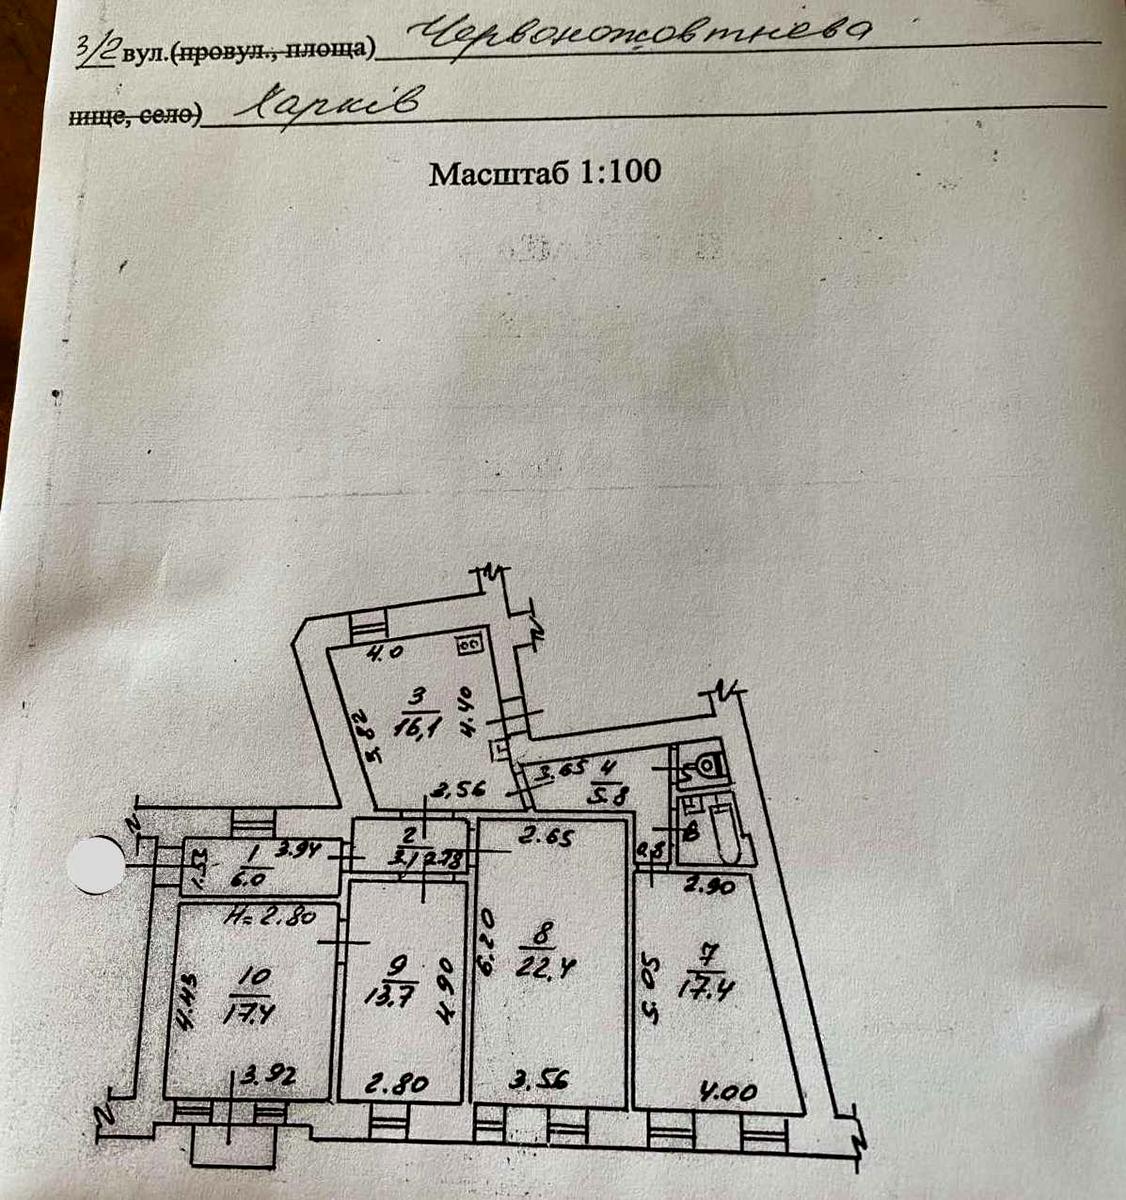 3/2 вул.(провул., площа) Червоножовтнева
нище, село) Харків
Масштаб 1:100
4.0
3
16,1
4.40
5.82
3,56
3.65
4
5.8
5
6
2
3,1
2.78
2.65
0.8
1
6.0
3.94
1.53
2.90
H=2.80
10
17.4
4.43
3.92
9
13.7
4.90
2.80
8
22.4
6.20
3.56
7
17.4
5.05
4.00